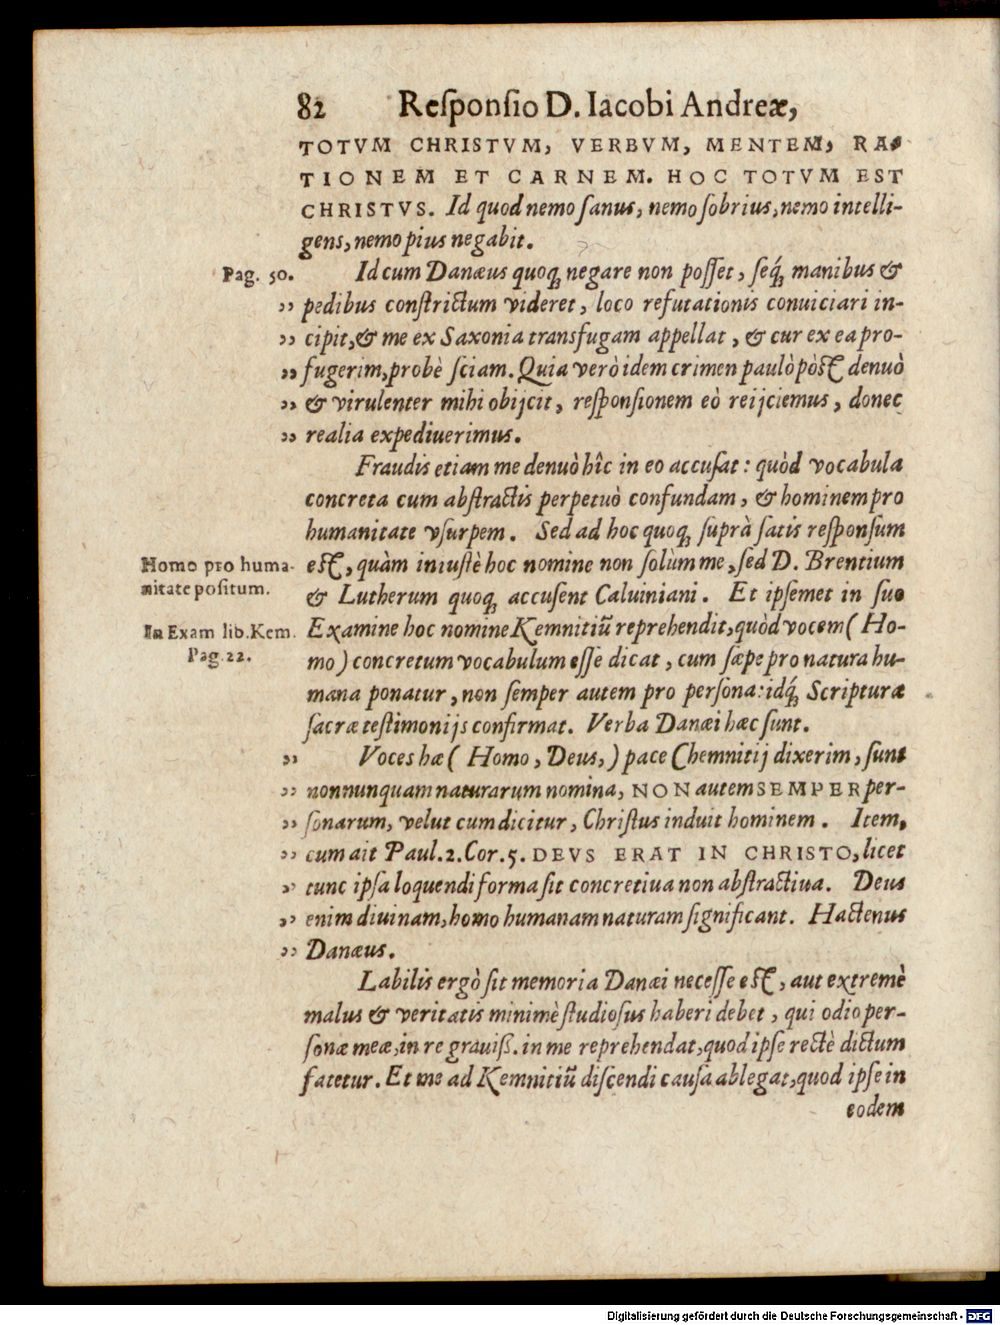 82 Reſponſio D. Iacobi Andreæ,
TOTVM CHRISTVM, VERBVM, MENTEM, RA-
TIONEM ET CARNEM. HOC TOTVM EST
CHRISTVS. Id quod nemo ſanus, nemo ſobrius, nemo intelli-
gens, nemo pius negabit.
Pag. 50. Id cum Danæus quoq́; negare non poſſet, ſeq́; manibus &
„ pedibus conſtrictum videret, loco refutationis conuiciari in-
„ cipit, & me ex Saxonia transfugam appellat, & cur ex ea pro-
„ fugerim, probè ſciam. Quia verò idem crimen paulò pòſt denuò
„ & virulenter mihi obijcit, reſponſionem eò reijciemus, donec
„ realia expediuerimus.
Fraudis etiam me denuò hîc in eo accuſat: quòd vocabula
concreta cum abſtractis perpetuò confundam, & hominem pro
humanitate vſurpem. Sed ad hoc quoq; ſuprà ſatis reſponſum
Homo pro huma- eſt, quàm iniuſtè hoc nomine non ſolùm me, ſed D. Brentium
nitate poſitum. & Lutherum quoq; accuſent Caluiniani. Et ipſemet in ſuo
In Exam lib. Kem. Examine hoc nomine Kemnitiū reprehendit, quòd vocem (Ho-
Pag. 22. mo) concretum vocabulum eſſe dicat, cum ſæpe pro natura hu-
mana ponatur, non ſemper autem pro perſona: idq́; Scripturæ
ſacræ teſtimonijs confirmat. Verba Danæi hæc ſunt.
„ Voces hæ (Homo, Deus,) pace Chemnitij dixerim, ſunt
„ nonnunquam naturarum nomina, NON autem SEMPER per-
„ ſonarum, velut cum dicitur, Chriſtus induit hominem. Item,
„ cum ait Paul. 2. Cor. 5. DEVS ERAT IN CHRISTO, licet
„ tunc ipſa loquendi forma ſit concretiua non abſtractiua. Deus
„ enim diuinam, homo humanam naturam ſignificant. Hactenus
„ Danæus.
Labilis ergò ſit memoria Danæi neceſſe eſt, aut extremè
malus & veritatis minimè ſtudioſus haberi debet, qui odio per-
ſonæ meæ, in re grauiß. in me reprehendat, quod ipſe rectè dictum
fatetur. Et me ad Kemnitiū diſcendi cauſa ablegat, quod ipſe in
eodem
Digitalisierung gefördert durch die Deutsche Forschungsgemeinschaft - DFG